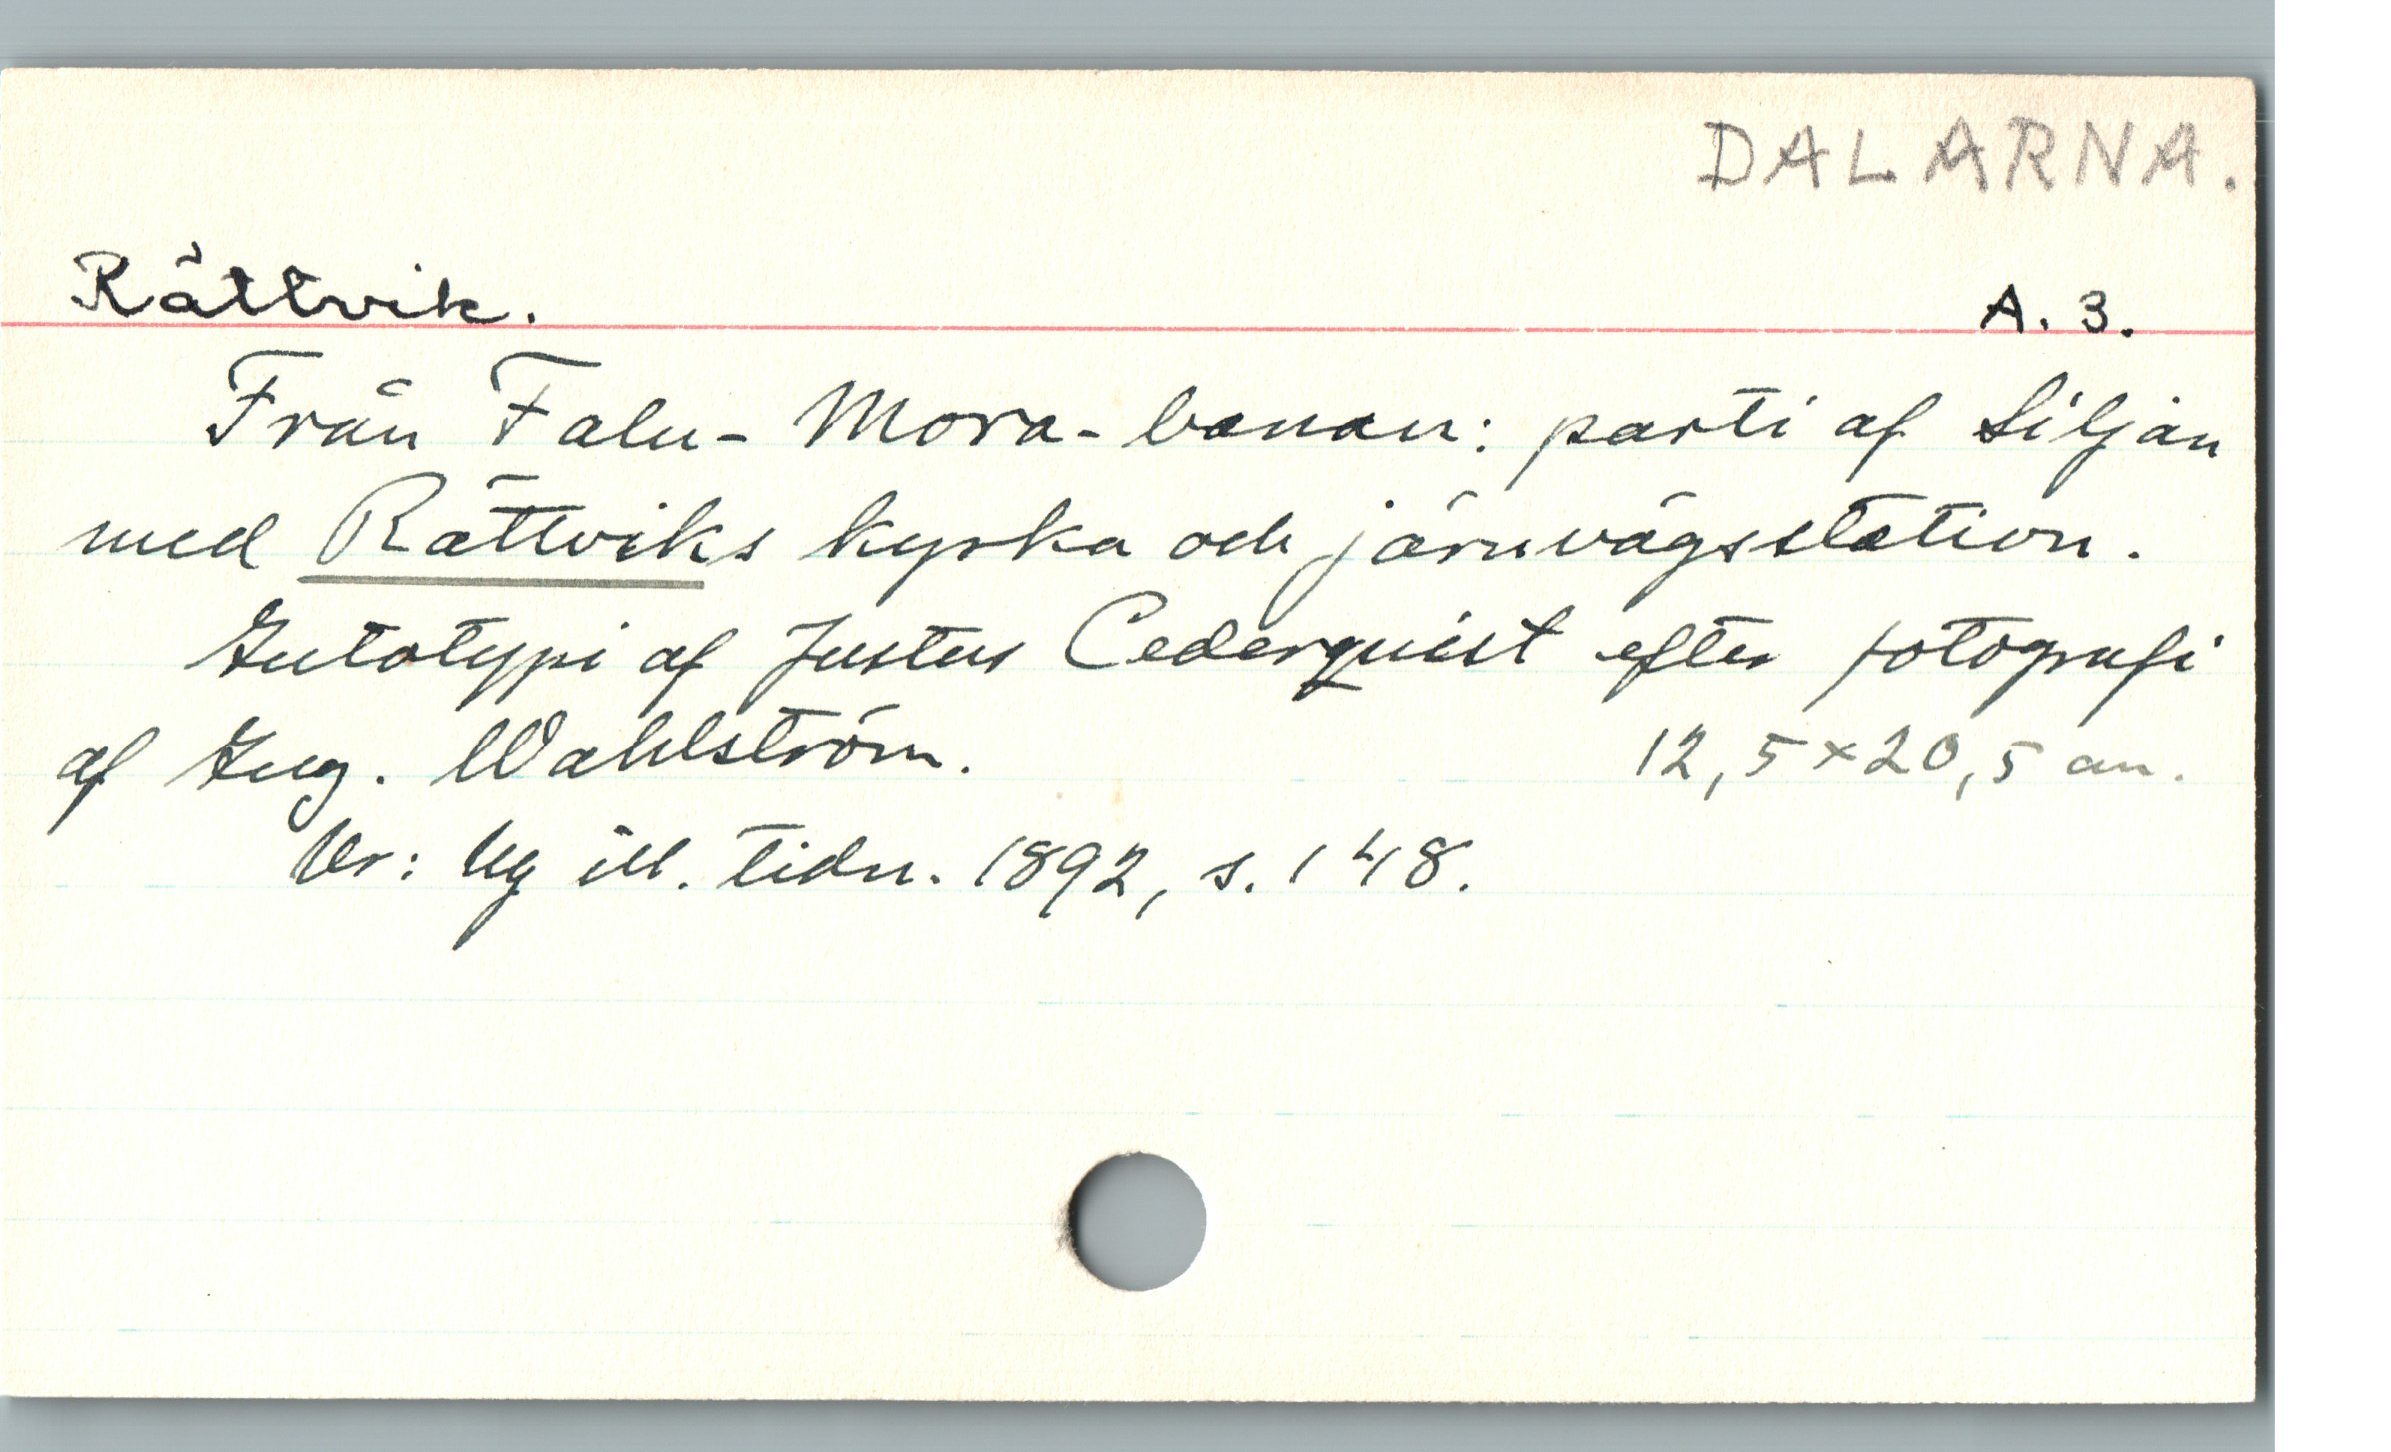 DALARNA.
Rättvik. A. 3.
Från Falu-Mora-banan: parti af Siljan
med Rättviks kyrka och järnvägsstation.
Autotypi af Justus Cederquist efter fotografi
af Aug. Wahlström. 12,5×20,5 cm.
Ur: Ny ill. tidn. 1892, s. 148.